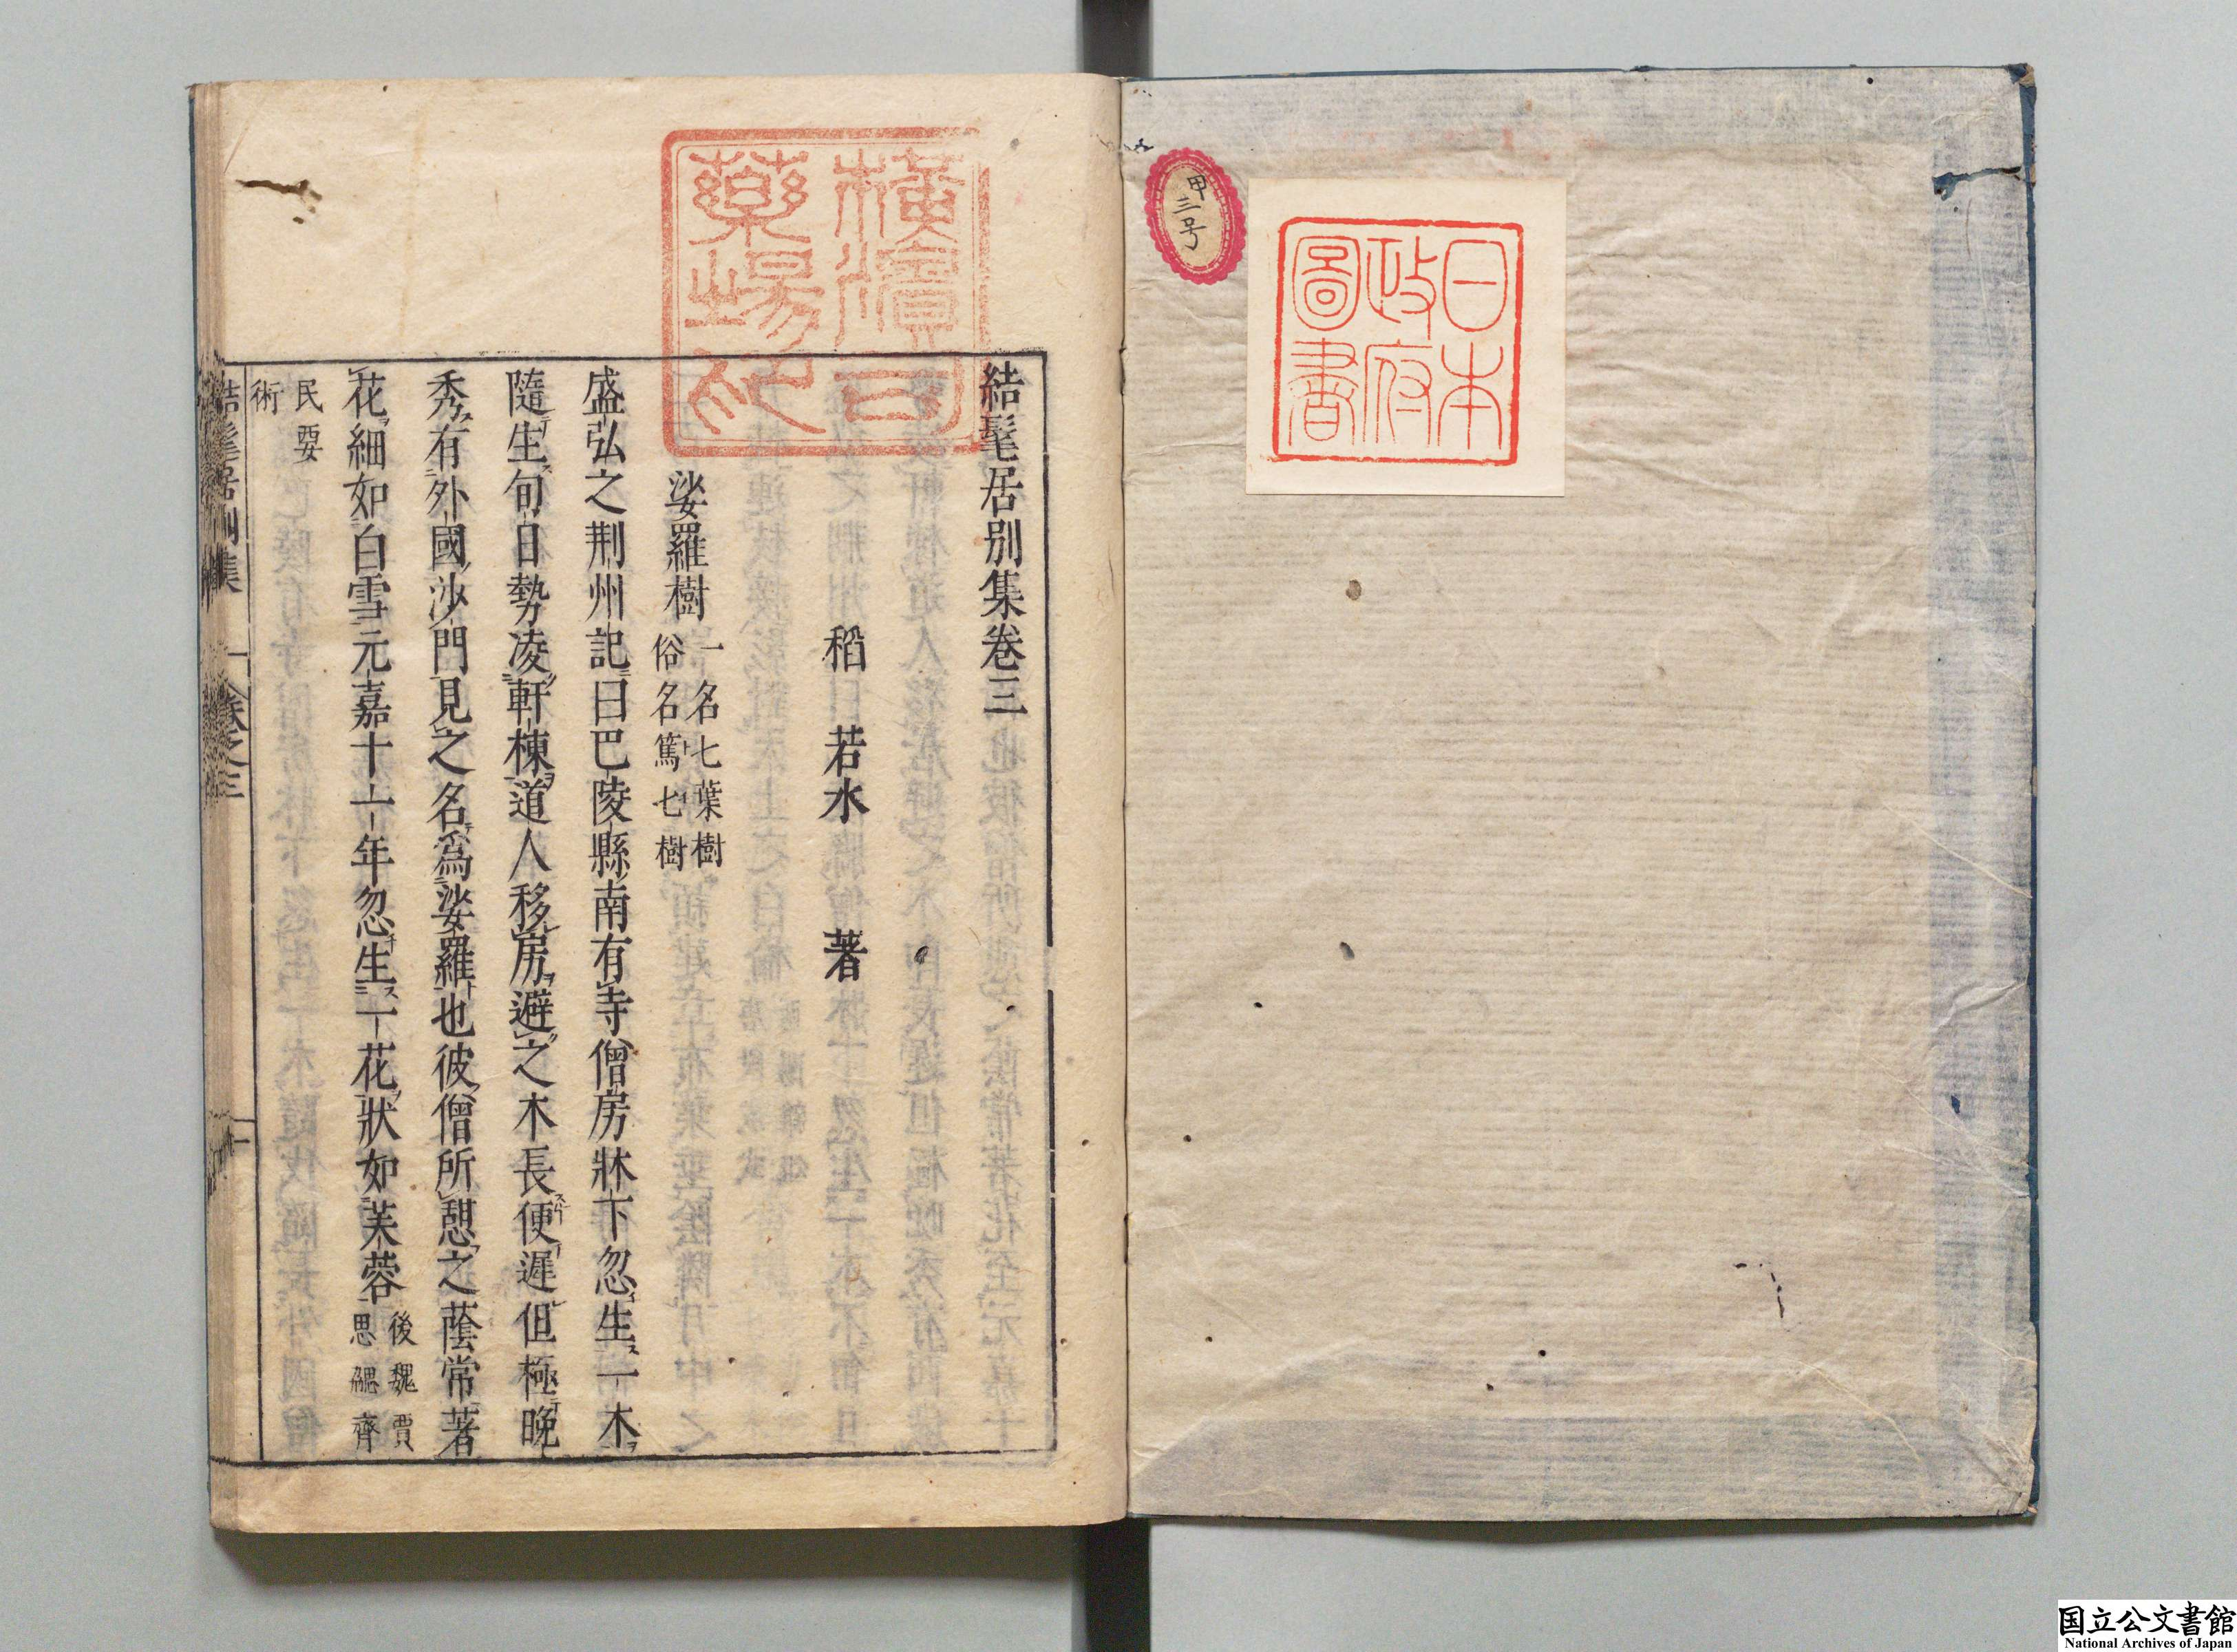 甲三号
日本
政府
圖書
結髦居別集卷三
稻若水著
娑羅樹 一名七葉樹
俗名篤七樹
盛弘之荆州記曰巴陵縣南有寺僧房牀下忽生一木
隨生旬日勢凌軒棟道人移房避之木長便遲但極晚
秀有外國沙門見之名為娑羅也彼僧所憩之蔭常著
花細如白雪元嘉十一年忽生一花狀如芙蓉 後魏賈
思勰齊
民要
術
結髦居別集 卷之三 一
国立公文書館
National Archives of Japan